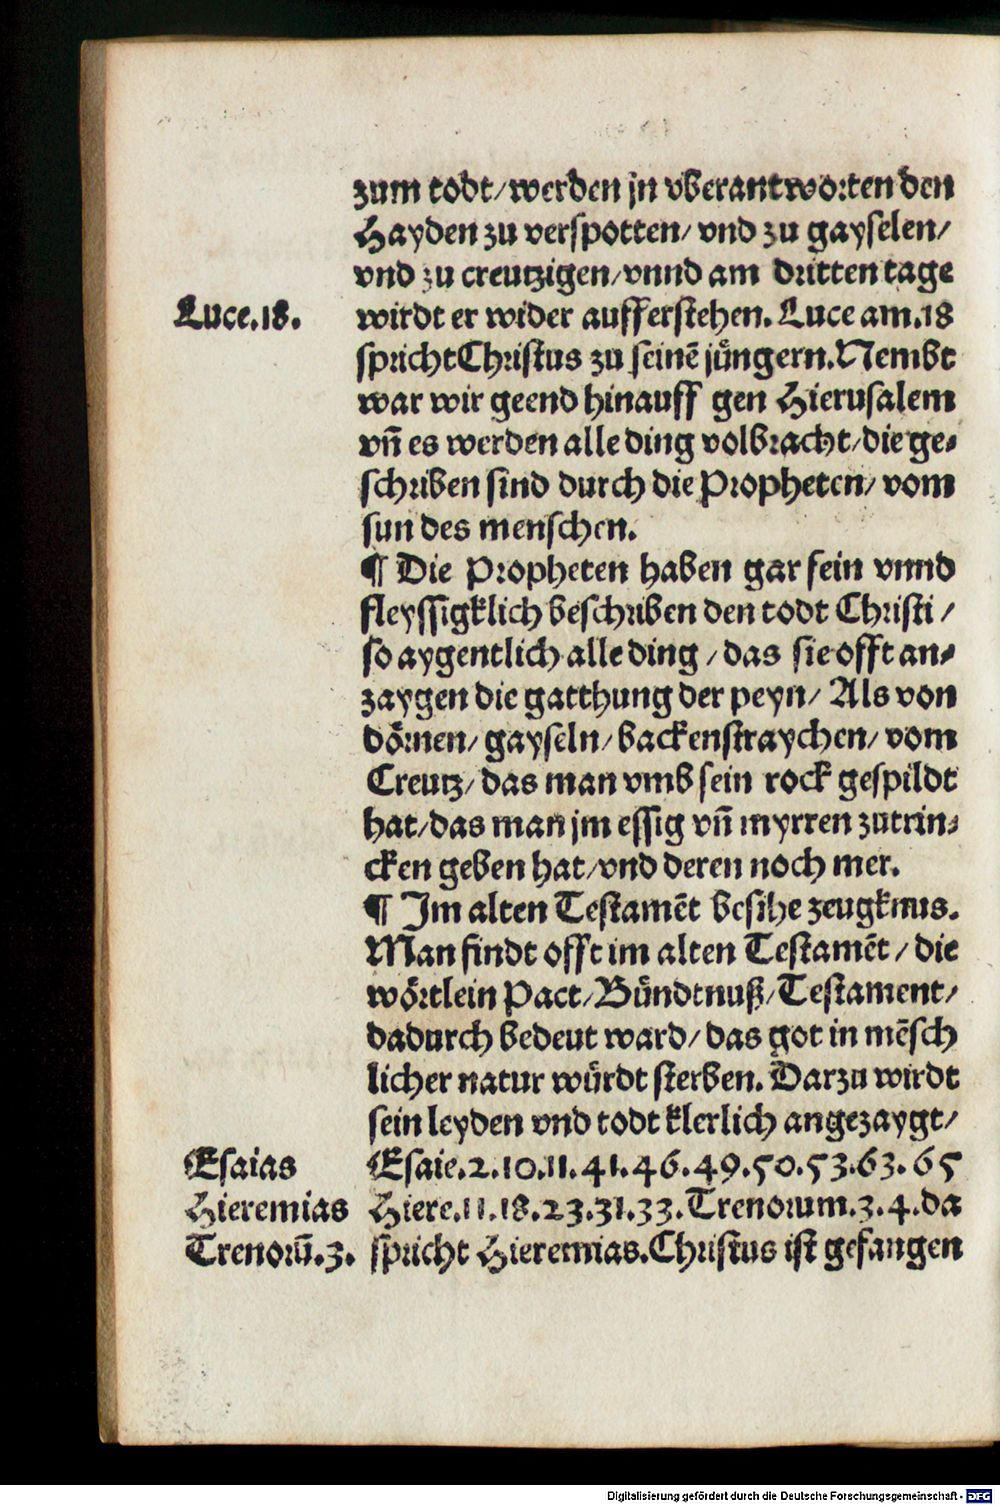 zum todt/werden jn vberantworten den
Hayden zu verspotten/ vnd zu gayselen/
vnd zu creutzigen/vnnd am dritten tage
Luce.18.
wirdt er wider aufferstehen. Luce am.18
spricht Christus zu seinē jüngern. Nembt
war wir geend hinauff gen Hierusalem
vn̄ es werden alle ding volbracht/die ge⸗
schriben sind durch die Propheten/ vom
sun des menschen.
¶ Die Propheten haben gar fein vnnd
fleyssigklich beschriben den todt Christi/
so aygentlich alle ding/das sie offt an⸗
zaygen die gatthung der peyn/ Als von
dörnen/ gayseln/ backenstraychen/ vom
Creutz/ das man vmb sein rock gespildt
hat/das man jm essig vn̄ myrren zutrin⸗
cken geben hat/vnd deren noch mer.
¶ Im alten Testamēt besihe zeugknus.
Man findt offt im alten Testamēt/ die
wörtlein Pact/Bündtnuß/Testament/
dadurch bedeut ward/das got in mēsch
licher natur würdt sterben. Darzu wirdt
sein leyden vnd todt klerlich angezaygt/
Esaias
Esaie.2.10.11.41.46.49.50.53.63.65
Hieremias
Hiere.11.18.23.31.33.Trenorum.3.4.da
Trenorū.3.
spricht Hieremias.Christus ist gefangen
Digitalisierung gefördert durch die Deutsche Forschungsgemeinschaft - DFG